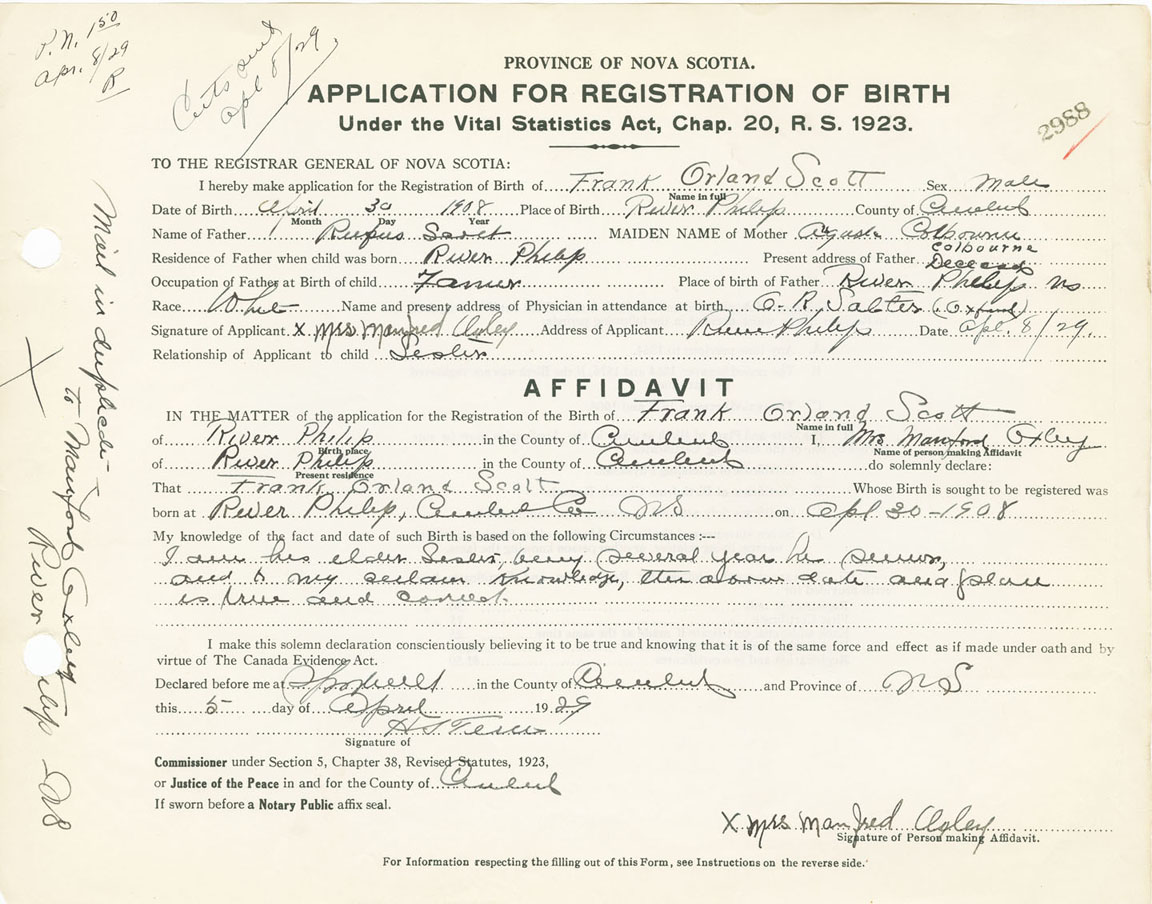 P.N. 1 50
Apr. 8/29
R
Certs sent
Apl 8/29.
PROVINCE OF NOVA SCOTIA.
APPLICATION FOR REGISTRATION OF BIRTH
Under the Vital Statistics Act, Chap. 20, R. S. 1923.
2988
TO THE REGISTRAR GENERAL OF NOVA SCOTIA:
I hereby make application for the Registration of Birth of Frank Orland Scott Sex Male
Name in full
Date of Birth April 30 1908 Place of Birth River Philip County of Cumberland
Month Day Year
Name of Father Rufus Scott MAIDEN NAME of Mother Colbourne
Colbourne
Residence of Father when child was born River Philip Present address of Father Deceased
Occupation of Father at Birth of child Farmer Place of birth of Father River Philip NS
Race White Name and present address of Physician in attendance at birth G. R. Salter (Oxford)
Signature of Applicant X Mrs Manfred Oxley Address of Applicant River Philip Date Apl. 8/29.
Relationship of Applicant to child Sister
AFFIDAVIT
IN THE MATTER of the application for the Registration of the Birth of Frank Orland Scott
Name in full
of River Philip in the County of Cumberland I, Mrs Manford Oxley
Birth place Name of person making Affidavit
of River Philip in the County of Cumberland do solemnly declare:
Present residence
That Frank Orland Scott Whose Birth is sought to be registered was
born at River Philip, Cumberland Co NS on Apl 30-1908
My knowledge of the fact and date of such Birth is based on the following Circumstances :---
I am his elder Sister, being several year his senior,
and to my certain knowledge, the above date and place
is true and correct.
I make this solemn declaration conscientiously believing it to be true and knowing that it is of the same force and effect as if made under oath and by
virtue of The Canada Evidence Act.
Declared before me at in the County of Cumberland and Province of NS
this 5 day of April 1929
Signature of
Commissioner under Section 5, Chapter 38, Revised Statutes, 1923,
or Justice of the Peace in and for the County of Cumberland
If sworn before a Notary Public affix seal.
X Mrs Manfred Oxley
Signature of Person making Affidavit.
For Information respecting the filling out of this Form, see Instructions on the reverse side.
Mail in duplicate
to Manford Oxley
River Philip NS
X